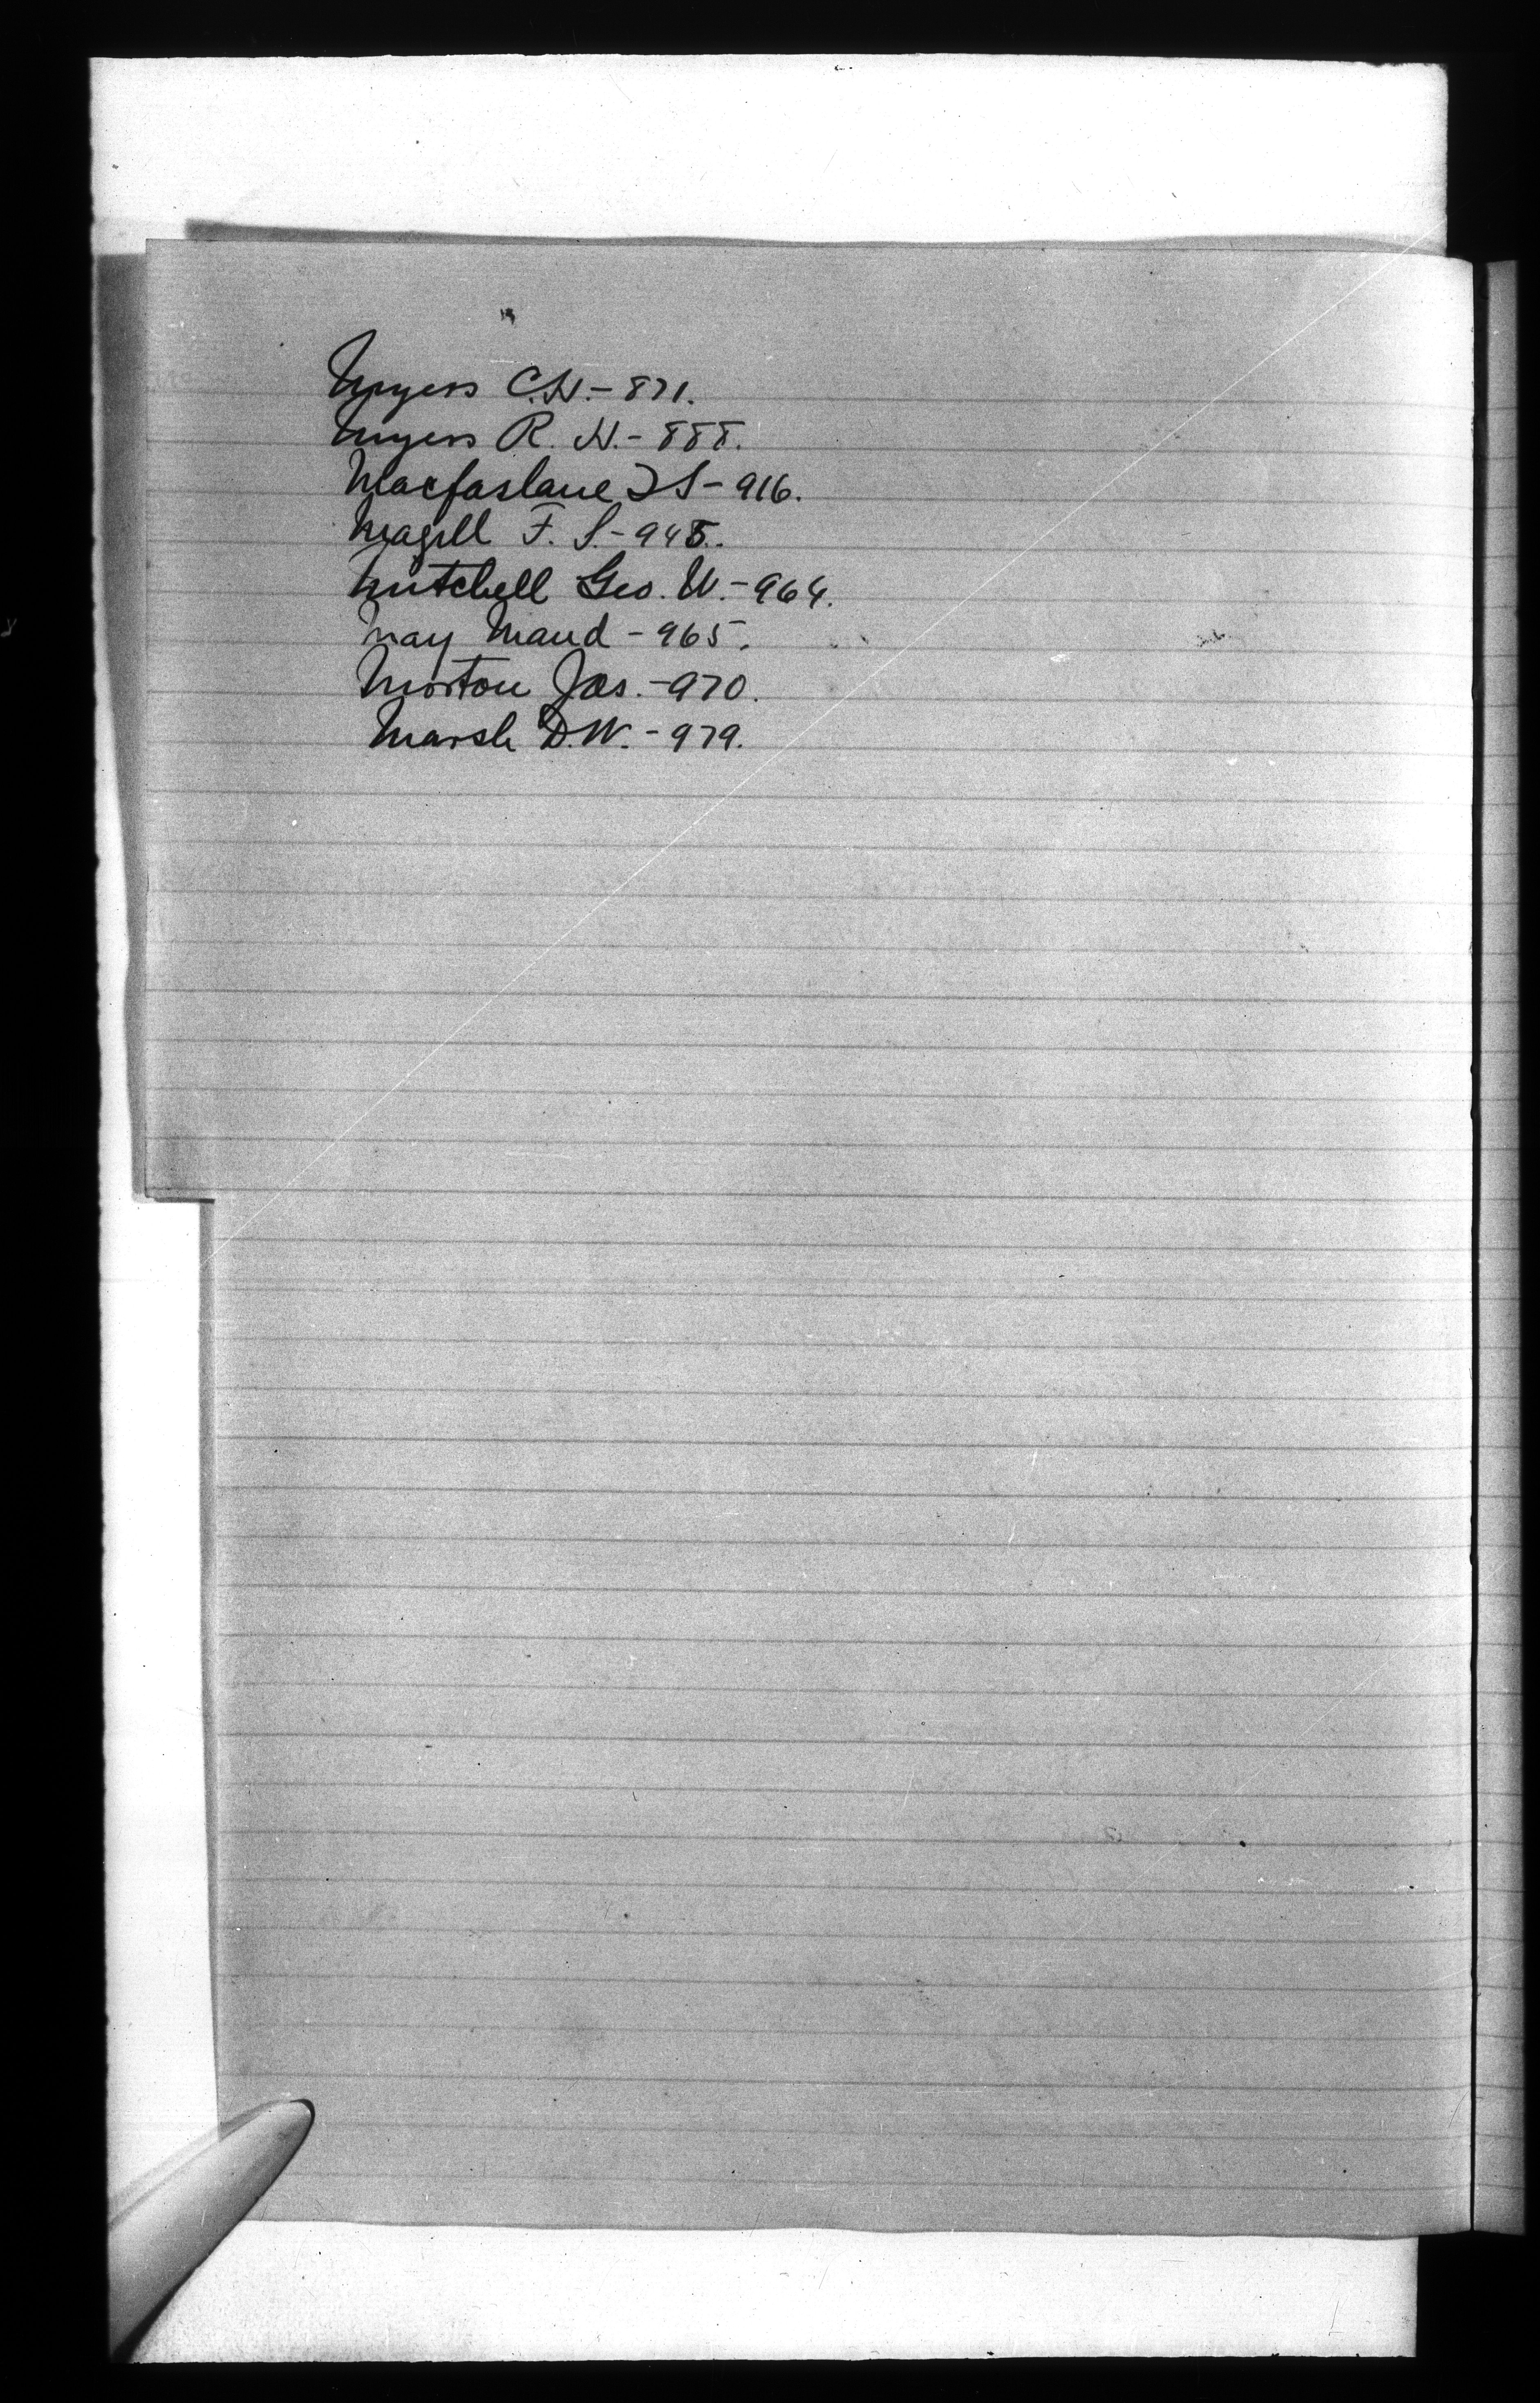 Myers C.H. - 871.
Myers R. H. - 888.
Macfarlane J S - 916.
Magill F. S. - 945.
Mitchell Geo. W. - 964.
May Maud - 965.
Morton Jas. - 970.
Marsh D.W. - 979.